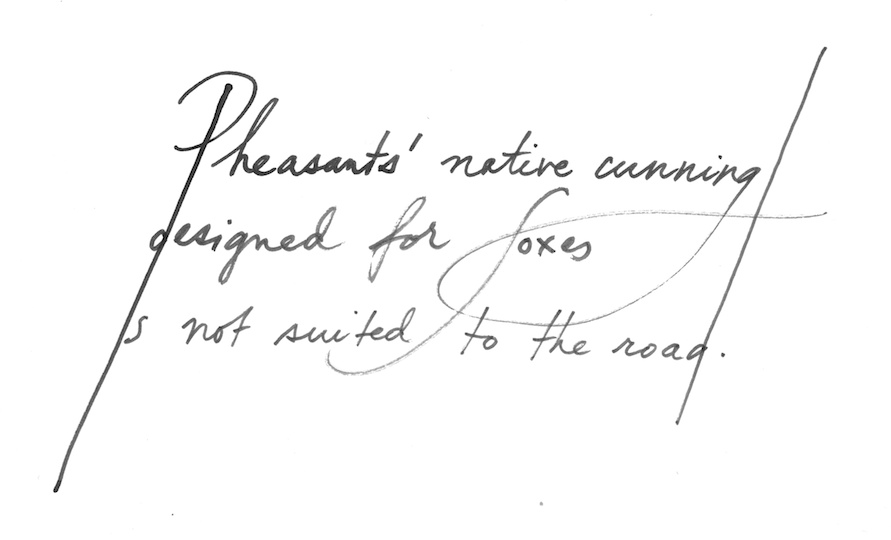 Pheasants' native cunning
designed for foxes
is not suited to the road.